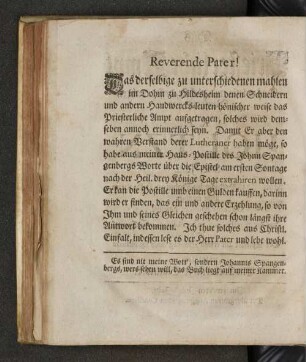 Reverende Pater!
Das derselbige zu unterschiedenen mahlen
im Dohm zu Hildesheim denen Schneidern
und andern Handwercks-leuten hönischer weise das
Priesterliche Ampt aufgetragen, solches wird dem-
selben annoch erinnerlich seyn. Damit Er aber den
wahren Verstand derer Lutheraner haben möge, so
habe aus meiner Haus-Postille des Johann Span-
genbergs Worte über die Epistel am ersten Sontage
nach der Heil. drey Könige Tage extrahiren wollen.
Er kan die Postille umb einen Gulden kauffen, darinn
wird er finden, das ein und andere Erzehlung, so von
Ihm und seines Gleichen geschehen schon längst ihre
Antwort bekommen. Ich thue solches aus Christl.
Einfalt, indessen lese es der Herr Pater und lebe wohl.
Es sind nit meine Wort, sondern Johannis Spangen-
bergs, wers sehen will, das Buch liegt auf meiner Kammer.